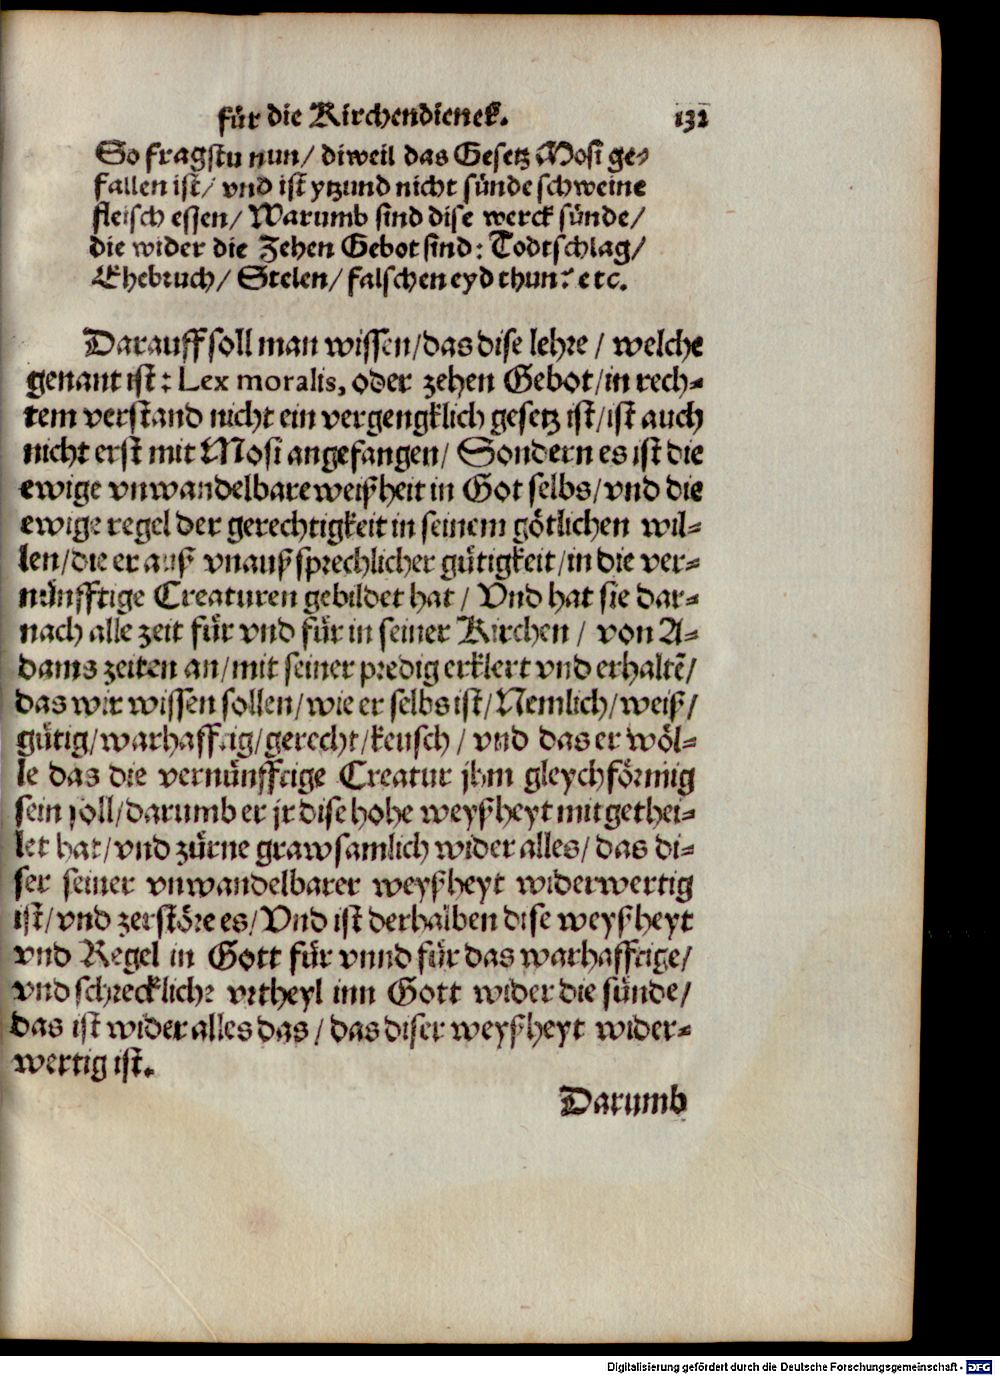 für die Kirchendienek. 132
So fragstu nun/ diweil das Gesetz Mosi ge-
fallen ist/ vnd ist ytzund nicht sünde schweine
fleisch essen/ Warumb sind dise werck sünde/
die wider die Zehen Gebot sind: Todtschlag/
Ehebruch/ Stelen/ falschen eyd thun? etc.
Darauff soll man wissen/das dise lehre / welche
genant ist: Lex moralis, oder zehen Gebot/in rech-
tem verstand nicht ein vergengklich gesetz ist/ist auch
nicht erst mit Mosi angefangen/ Sondern es ist die
ewige vnwandelbare weißheit in Got selbs/vnd die
ewige regel der gerechtigkeit in seinem götlichen wil-
len/die er auß vnaußsprechlicher gütigkeit/in die ver-
nünfftige Creaturen gebildet hat / Vnd hat sie dar-
nach alle zeit für vnd für in seiner Kirchen / von A-
dams zeiten an/mit seiner predig erklert vnd erhaltẽ/
das wir wissen sollen/wie er selbs ist/Nemlich/weiß/
gütig/warhafftig/gerecht/keusch / vnd das er wöl-
le das die vernünfftige Creatur jhm gleychförmig
sein soll/darumb er jr dise hohe weyßheyt mitgethei-
let hat/vnd zürne grawsamlich wider alles/ das di-
ser seiner vnwandelbarer weyßheyt widerwertig
ist/vnd zerstöre es/Vnd ist derhalben dise weyßheyt
vnd Regel in Gott für vnnd für das warhafftige/
vnd schrecklich2 vrtheyl inn Gott wider die sünde/
das ist wider alles das / das diser weyßheyt wider-
wertig ist.
Darumb
Digitalisierung gefördert durch die Deutsche Forschungsgemeinschaft - DFG